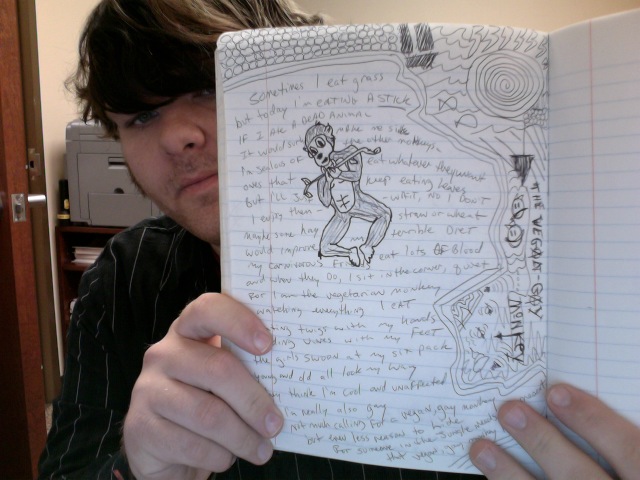 Sometimes I eat grass
but today I'm EATING A STICK
IF I ATE A DEAD ANIMAL
It would make me sick
I'm jealous of the other monkeys
ones that eat whatever they want
But I'll keep eating leaves
I envy them - wait, No I DON'T
maybe some hay straw or wheat
would improve my terrible DIET
my carnivorous friends eat lots OF Blood
and when they do, I sit in the corner, quiet
For I am the vegetarian monkey
watching everything I EAT
twigs with my hands
with my FEET
the girls swoon at my six pack
young and old all look my way
think I'm cool and unaffected
I'm really also gay
not much calling for a vegan, gay monkey
even less reason to
For someone in the jungle
that vegan, gay
THE VEGAN-GAY MONKEY